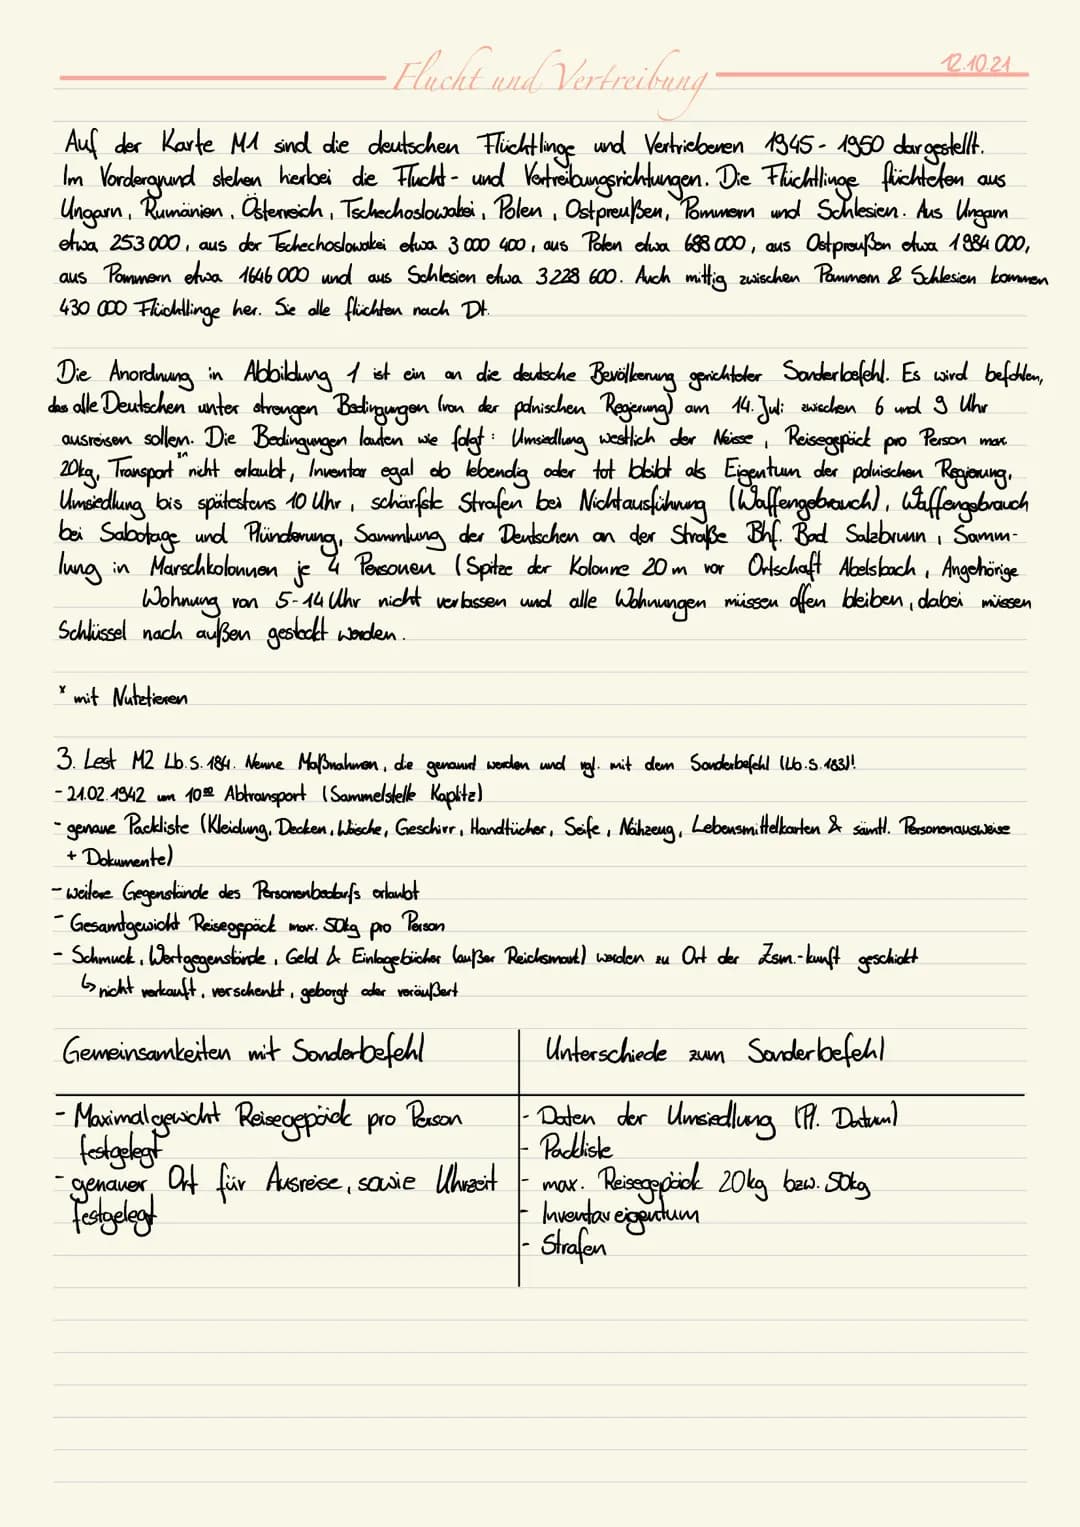 Flucht und Vertreibung
12.10.21
Auf der Karte M1 sind die deutschen Flüchtlinge und Vertriebenen 1945 - 1950 dargestellt.
Im Vordergrund stehen hierbei die Flucht- und Vertreibungsrichtungen. Die Flüchtlinge flüchteten aus
Ungarn, Rumänien, Österreich, Tschechoslowakei, Polen, Ostpreußen, Pommern und Schlesien. Aus Ungarn
etwa 253 000, aus der Tschechoslowakei etwa 3 000 400, aus Polen etwa 688 000, aus Ostpreußen etwa 1 984 000,
aus Pommern etwa 1646 000 und aus Schlesien etwa 3 228 600. Auch mittig zwischen Pommern & Schlesien kommen
430 000 Flüchtlinge her. Sie alle flüchten nach Dt.
Die Anordnung in Abbildung 1 ist ein an die deutsche Bevölkerung gerichteter Sonderbefehl. Es wird befohlen,
das alle Deutschen unter strengen Bedingungen (von der polnischen Regierung) am 14. Juli zwischen 6 und 9 Uhr
ausreisen sollen. Die Bedingungen lauten wie folgt: Umsiedlung westlich der Neisse, Reisegepäck pro Person max
20kg, Transport nicht erlaubt, Inventar egal ob lebendig oder tot bleibt als Eigentum der polnischen Regierung,
Umsiedlung bis spätestens 10 Uhr, schärfste Strafen bei Nichtausführung (Waffengebrauch), Waffengebrauch
bei Sabotage und Plünderung, Sammlung der Deutschen an der Straße Bhf. Bad Salzbrunn, Samm-
lung in Marschkolonnen je 4 Personen (Spitze der Kolonne 20 m vor Ortschaft Abelsbach, Angehörige
Wohnung von 5-14 Uhr nicht verlassen und alle Wohnungen müssen offen bleiben, dabei müssen
Schlüssel nach außen gesteckt werden.
x mit Nutztieren
3. Lest M2 Lb. S. 184. Nenne Maßnahmen, die genannt werden und vgl. mit dem Sonderbefehl (Lb. S. 183)!
- 21.02.1942 um 10⁰⁰ Abtransport (Sammelstelle Kaplitz)
- genaue Packliste (Kleidung, Decken, Wäsche, Geschirr, Handtücher, Seife, Nähzeug, Lebensmittelkarten & sämtl. Personenausweise
+ Dokumente)
- weitere Gegenstände des Personenbedarfs erlaubt
- Gesamtgewicht Reisegepäck max. 50kg pro Person
- Schmuck, Wertgegenstände, Geld & Einlagebücher (außer Reichsmark) werden zu Ort der Zsm.-kunft geschickt
↳ nicht verkauft, verschenkt, geborgt oder veräußert
Gemeinsamkeiten mit Sonderbefehl
- Maximalgewicht Reisegepäck pro Person
festgelegt
- genauer Ort für Ausreise, sowie Uhrzeit
festgelegt
Unterschiede zum Sonderbefehl
- Daten der Umsiedlung (Pl. Datum)
- Packliste
- max. Reisegepäck 20kg bzw. 50kg
- Inventareigentum
- Strafen